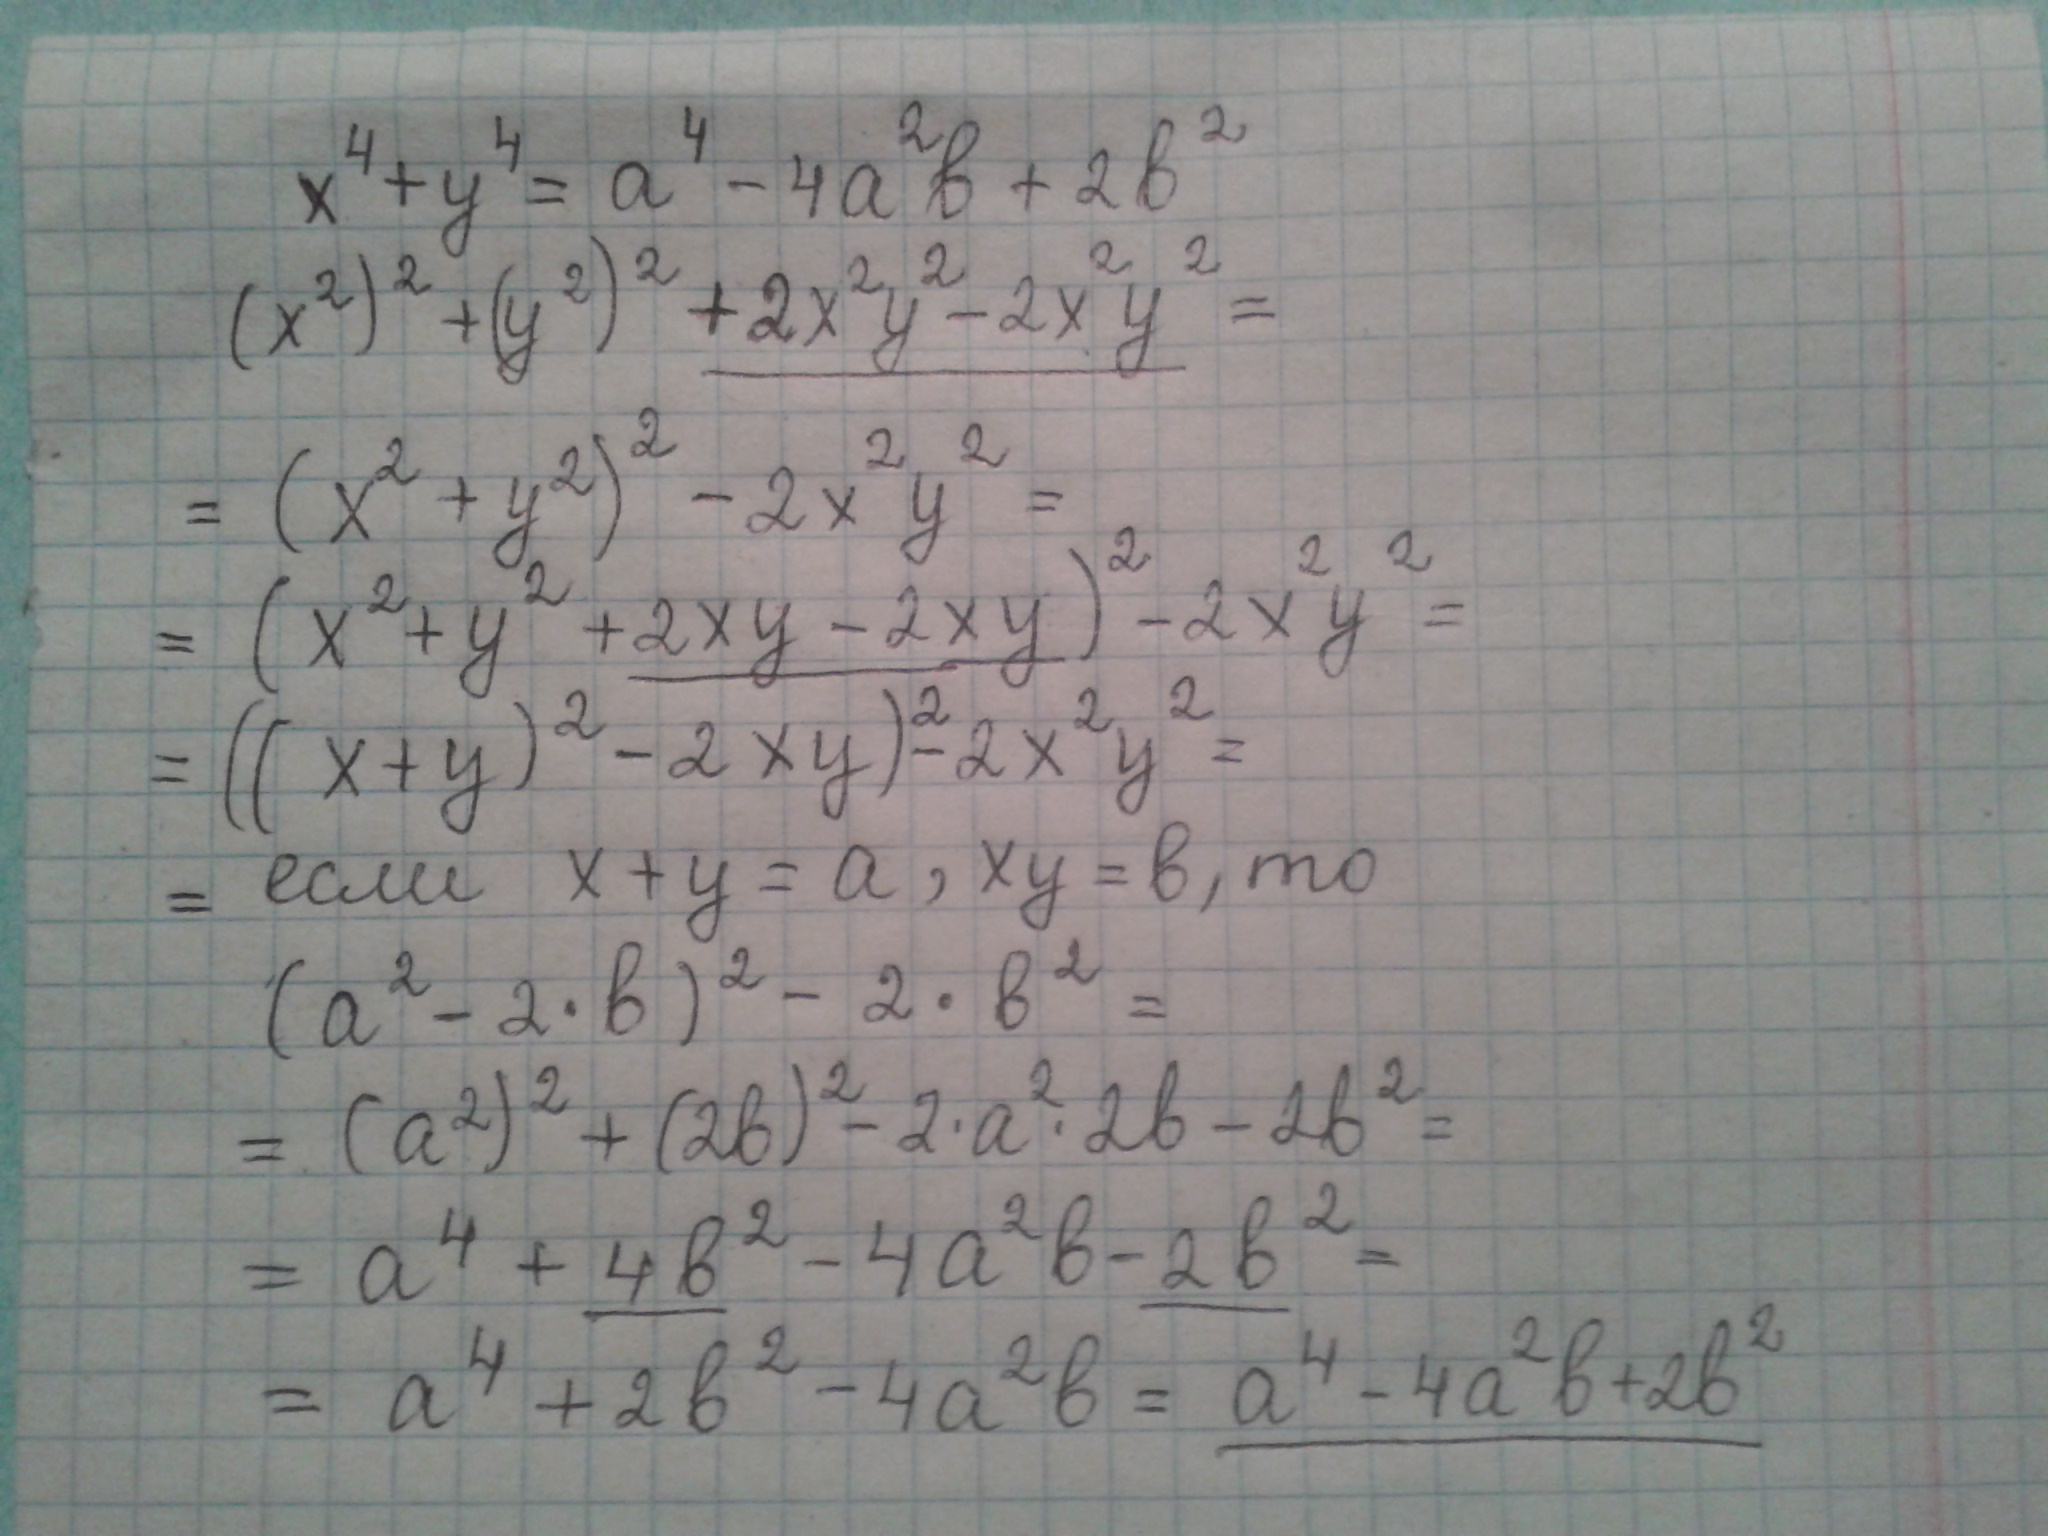 x⁴+y⁴= a⁴-4a²в+2в²
(x²)²+(y²)²+2x²y²-2x²y² =
= (x²+y²)² -2x²y² =
= (x²+y²+2xy-2xy)²-2x²y² =
= ((x+y)²-2xy)²-2x²y² =
= если x+y=a, xy=в, то
(a²-2·в)²- 2·в² =
= (a²)²+(2в)²-2·a²·2в-2в² =
= a⁴+4в²-4a²в-2в² =
= a⁴+2в²-4a²в = a⁴-4a²в+2в²